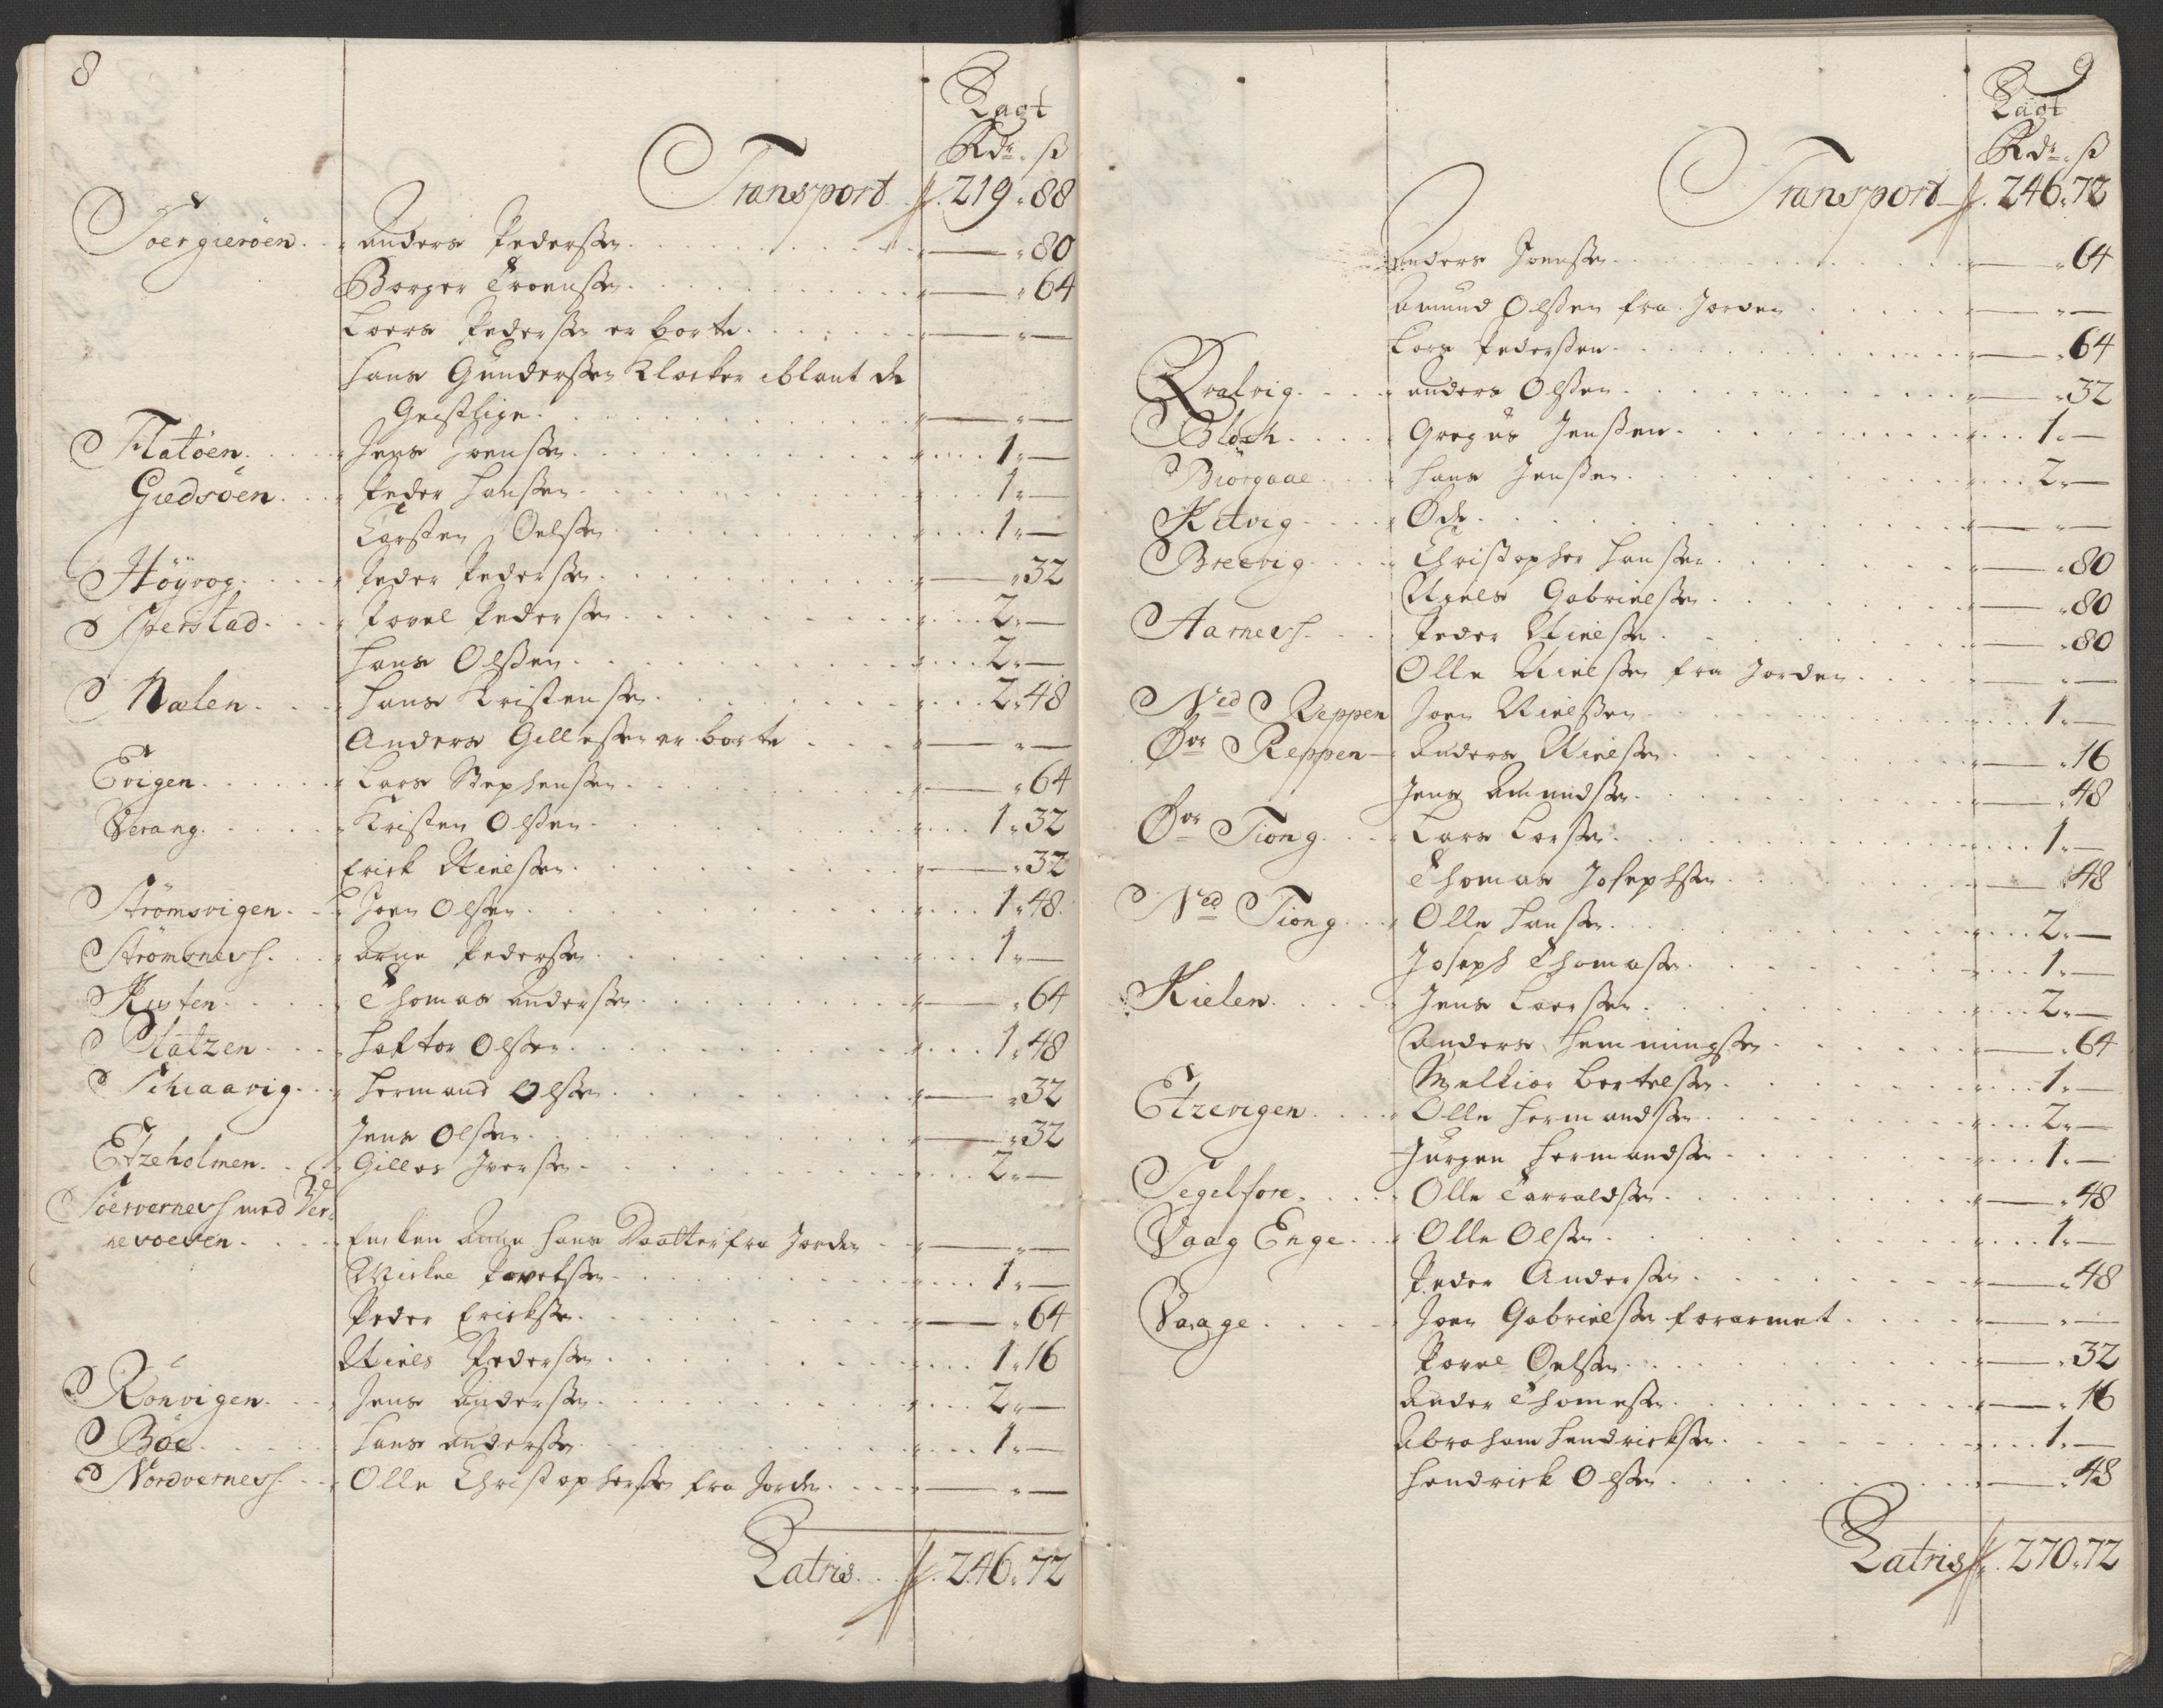 8
Lagt
Rdr. ß
Transport 219 „ 88
Soergierøen Anders Pedersen „ 80
Borger Troensen „ 64
Loers Pedersen er borte „
Hans Gundersen Klocker iblant de
Geistlige „
Flatøen Jens Joensen 1 „
Giedsøen Peder Hansen 1 „
Torsten Oelsen 1 „
Høyvog Peder Pedersen „ 32
Sperstad Povel Pedersen 2 „
Hans Olsen 2 „
Nælen Hans Kristensen 2 „ 48
Anders Gillesen er borte „
Evigen Lars Stephensen „ 64
Verang Kristen Olsen 1 „ 32
Erick Nielsen „ 32
Strømsvigen Joen Olsen 1 „ 48
Strømsnesh Arne Pedersen 1 „
Kusten Thomas Andersen „ 64
Statzen Haftor Olsen 1 „ 48
Schiaavig Hermand Olsen „ 32
Jens Olsen „ 32
Etzeholmen Gilles Iversen 2 „
Søervernesh med Ver=
nevoeven Encken Anna Hans Daatter fra Jorden „
Mickel Povelsen 1 „
Peder Ericksen „ 64
Niels Pedersen 1 „ 16
Rønvigen Jens Andersen 2 „
Bøe Hans Andersen 1 „
Nordvernesh Olle Christophersen fra Jorden „
Latris 246 „ 72
9
Lagt
Rdr. ß
Transport 246 „ 72
Anders Joensen „ 64
Amund Olsen fra Jorden „
Lars Pedersen „ 64
Qvalvig Anders Olsen „ 32
Bloch Gregus Jensen 1 „
Biørgaae Hans Jensen 2 „
Kitvig Øde „
Breevig Christopher Hansen „ 80
Niels Gabrielsen „ 80
Aarnesh Peder Nielsen „ 80
Olle Nielsen fra Jorden „
Ned Reppen Joen Nielsen 1 „
Øvr Reppen Anders Nielsen „ 16
Jens Amundsen „ 48
Øvr Tiong Lars Larsen 1 „
Thomas Josephsen „ 48
Ned Tiong Olle Hansen 2 „
Joseph Thomasen 1 „
Kielen Jens Loersen 2 „
Anders Hemmingsen „ 64
Melkior Bertelsen 1 „
Etzevigen Olle Hermandsen 2 „
Jurgen Hermandsen 1 „
Segelfore Olle Tarraldsen „ 48
Vaag Enge Olle Olsen 1 „
Peder Andersen „ 48
Vaage Joen Gabrielsen forarmet „
Povel Oelsen „ 32
Ander Thomesen „ 16
Abraham Hendricksen 1 „
Hendrick Olsen „ 48
Latris 270 „ 72